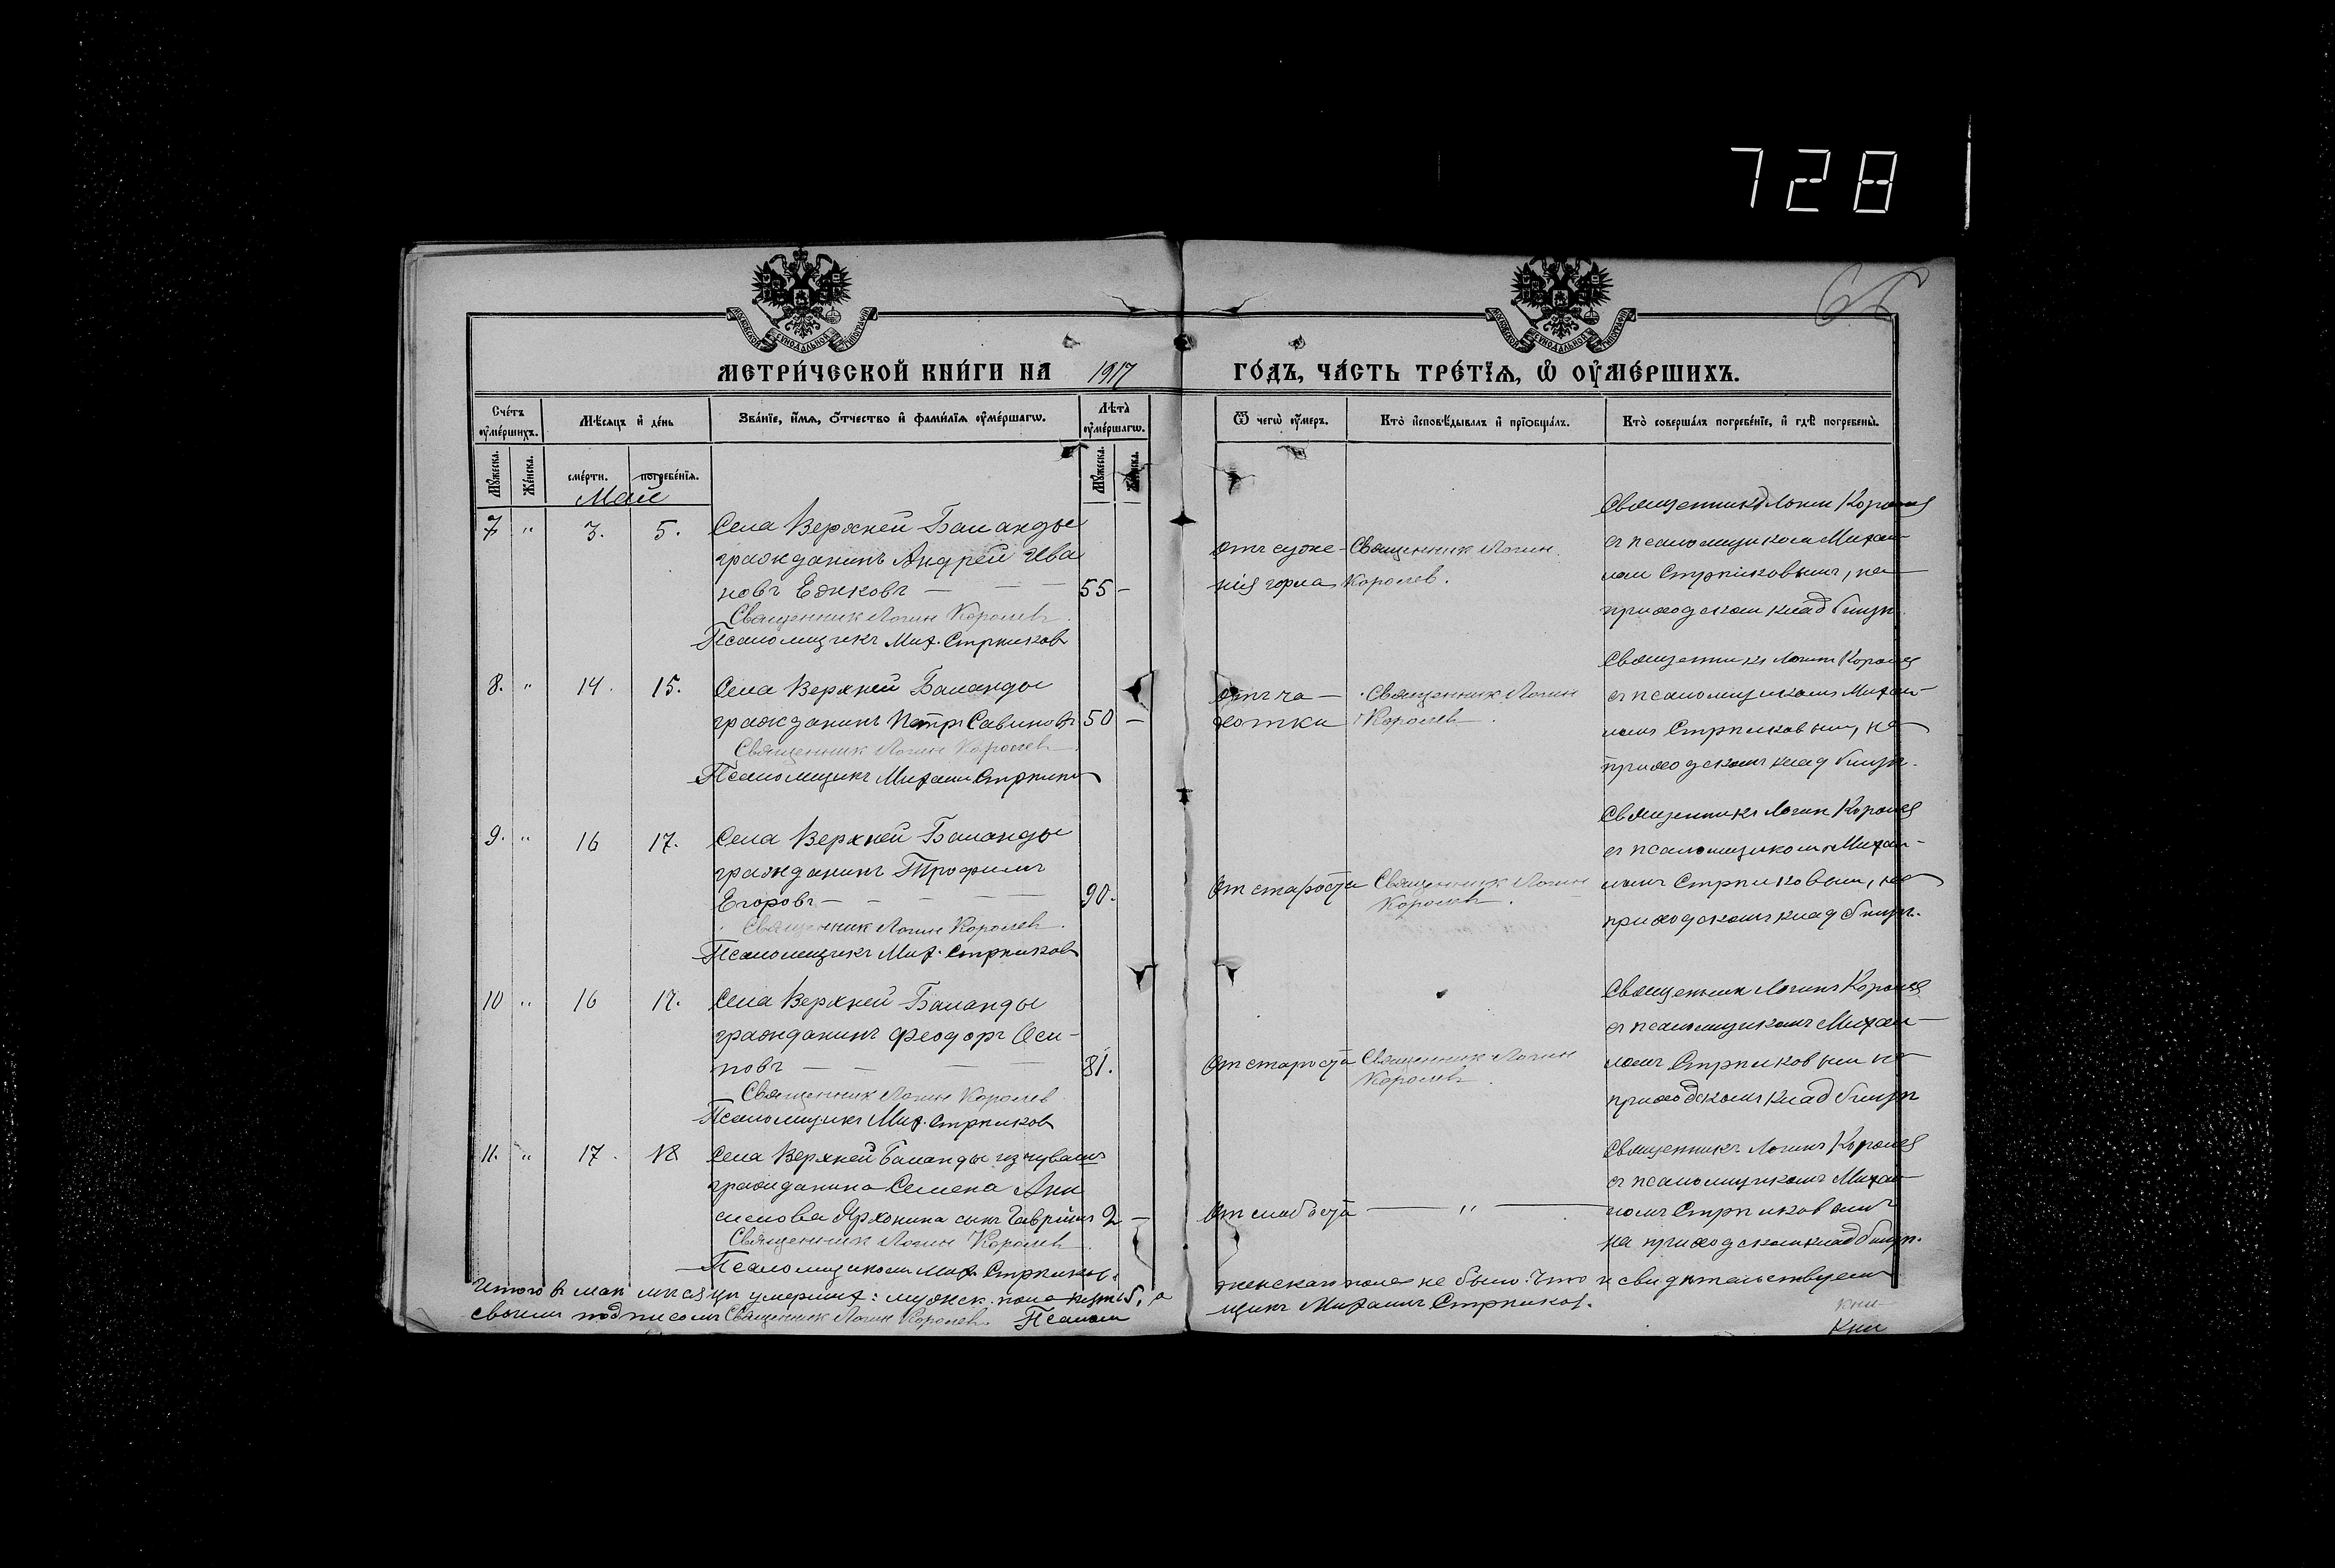 728
66
МЕТРИ́ЧЕСКОЙ КНИ́ГИ НА 1917 ГО́ДЪ, ЧА́СТЬ ТРЕ́ТЇѦ, Ѡ҆ ОУ҆МЕ́РШИХЪ.
Сче́тъ оу҆ме́ршихъ.
Мѣ́сѧцъ и҆ де́нь
Зва́нїе, и҆́мѧ, ѻ҆́тчество и҆ фами́лїѧ оу҆ме́ршагѡ.
Лѣ́та оу҆ме́ршагѡ.
Ѿ чегѡ̀ оу҆́меръ.
Кто̀ и҆сповѣ́дывалъ и҆ прїѻбща́лъ.
Кто̀ соверша́лъ погребе́нїе, и҆ гдѣ̀ погребены̀.
Мꙋ́жеска.
Же́нска.
сме́рти.
погребе́нїѧ.
Мꙋ́жеска.
Же́нска.
Май
7 " 3. 5.
Села Верхней Баланды
гражданинъ Андрей Ива
новъ Едиковъ — 55 —
Священник Логин Королев.
Псаломщикъ Мих. Стрпиков
отъ суже-
нія горла
Священник Логин
Королев.
Священникъ Логин Королев
съ псаломщиком Михаи-
лом Стрпиковымъ, на
приходском кладбищѣ.
8. " 14. 15.
Села Верхней Баланды
гражданинъ Петръ Савиновъ 50 —
Священник Логин Королев.
Псаломщикъ Михаил
отъ ча-
хотки
Священник Логин
Королев.
Священникъ Логин Королев
съ псаломщикомъ Михаи-
ломъ Стрпиковым, на
приходскомъ кладбищѣ.
9. " 16 17.
Села Верхней Баланды
гражданинъ Трофимъ
Егоровъ — 90.
Священник Логин Королев.
Псаломщикъ Мих. Стрпиков
От старости
Священник Логин
Королев.
Священникъ Логин Королев
съ псаломщикомъ Михаи-
ломъ Стрпиковым, на
приходскомъ кладбищѣ.
10 " 16 17.
Села Верхней Баланды
гражданинъ Феодоръ Оси-
повъ — 81.
Священник Логин Королев
Псаломщикъ Мих. Стрпиков
От старости
Священник Логин
Королев.
Священник Логинъ Королев
съ псаломщикомъ Михаи-
ломъ Стрпиковым на
приходскомъ кладбищѣ
11. " 17. 18
Села Верхней Баланды из чувашъ
гражданина Семена Ани
симова сынъ Гавріилъ 2 —
Священник Логин Королев.
Псаломщиком Мих. Стрпиков.
От слабости — " —
Священникъ Логинъ Королев
съ псаломщикомъ Михаи-
ломъ Стрпиковым
на приходском кладбищѣ.
Итого в маѣ мѣсяцѣ умерших: мужск. пола пять 5, а женскаго пола не было. Что и свидѣтельствуем
своим подписом Священник Логин Королев. Псалом щикъ Михаилъ Стрпиков.
кни-
Кни